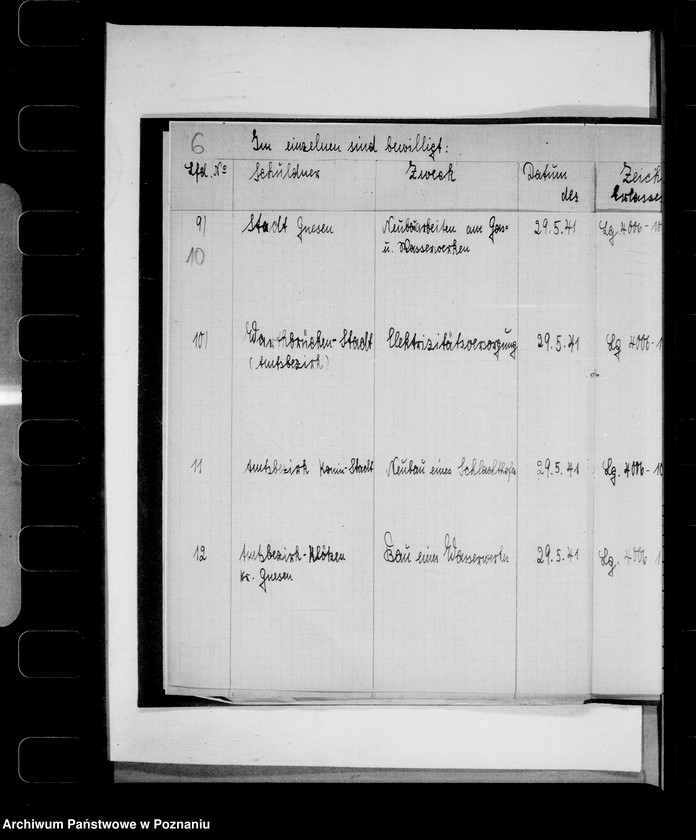 6 Im einzelnen sind bewilligt:
Lfd. No Schuldner Zweck Datum des Zeich Erlasses
9) Stadt Gnesen Neubauarbeiten am Gas= 29.5.41 Lg. 4006-10
10 u. Wasserwerken
10) Warthbrücken-Stadt Elektrizitätsversorgung 29.5.41 Lg 4006-1
(Amtsbezirk)
11 Amtsbezirk Konin-Stadt Neubau eines Schlachthofs 29.5.41 Lg. 4006-10
12 Amtsbezirk-Klötzen Bau eines Wasserwerks 29.5.41 Lg. 4006 1
Kr. Gnesen
Archiwum Państwowe w Poznaniu